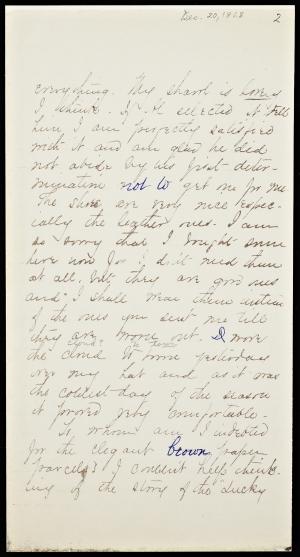 Dec. 20, 1868
2
everything. My shawl is lovely
I think. If H. selected it tell
him I am perfectly satisfied
with it and am glad he did
not abide by his first deter-
mination not to get one for me
The shoes are very nice espec-
ially the leather ones. I am
so sorry that I bought some
here now for I do'nt need them
at all, but they are good ones
and I shall wear them instead
of the ones you sent me till
they are worn out. I wore
the cloud to town yesterday
over my hat and as it was
the coldest day of the season
it proved very comfortable.
To whom am I indebted
for the elegant brown paper
parcels? I couldnt help think-
ing of the story of the "Lucky